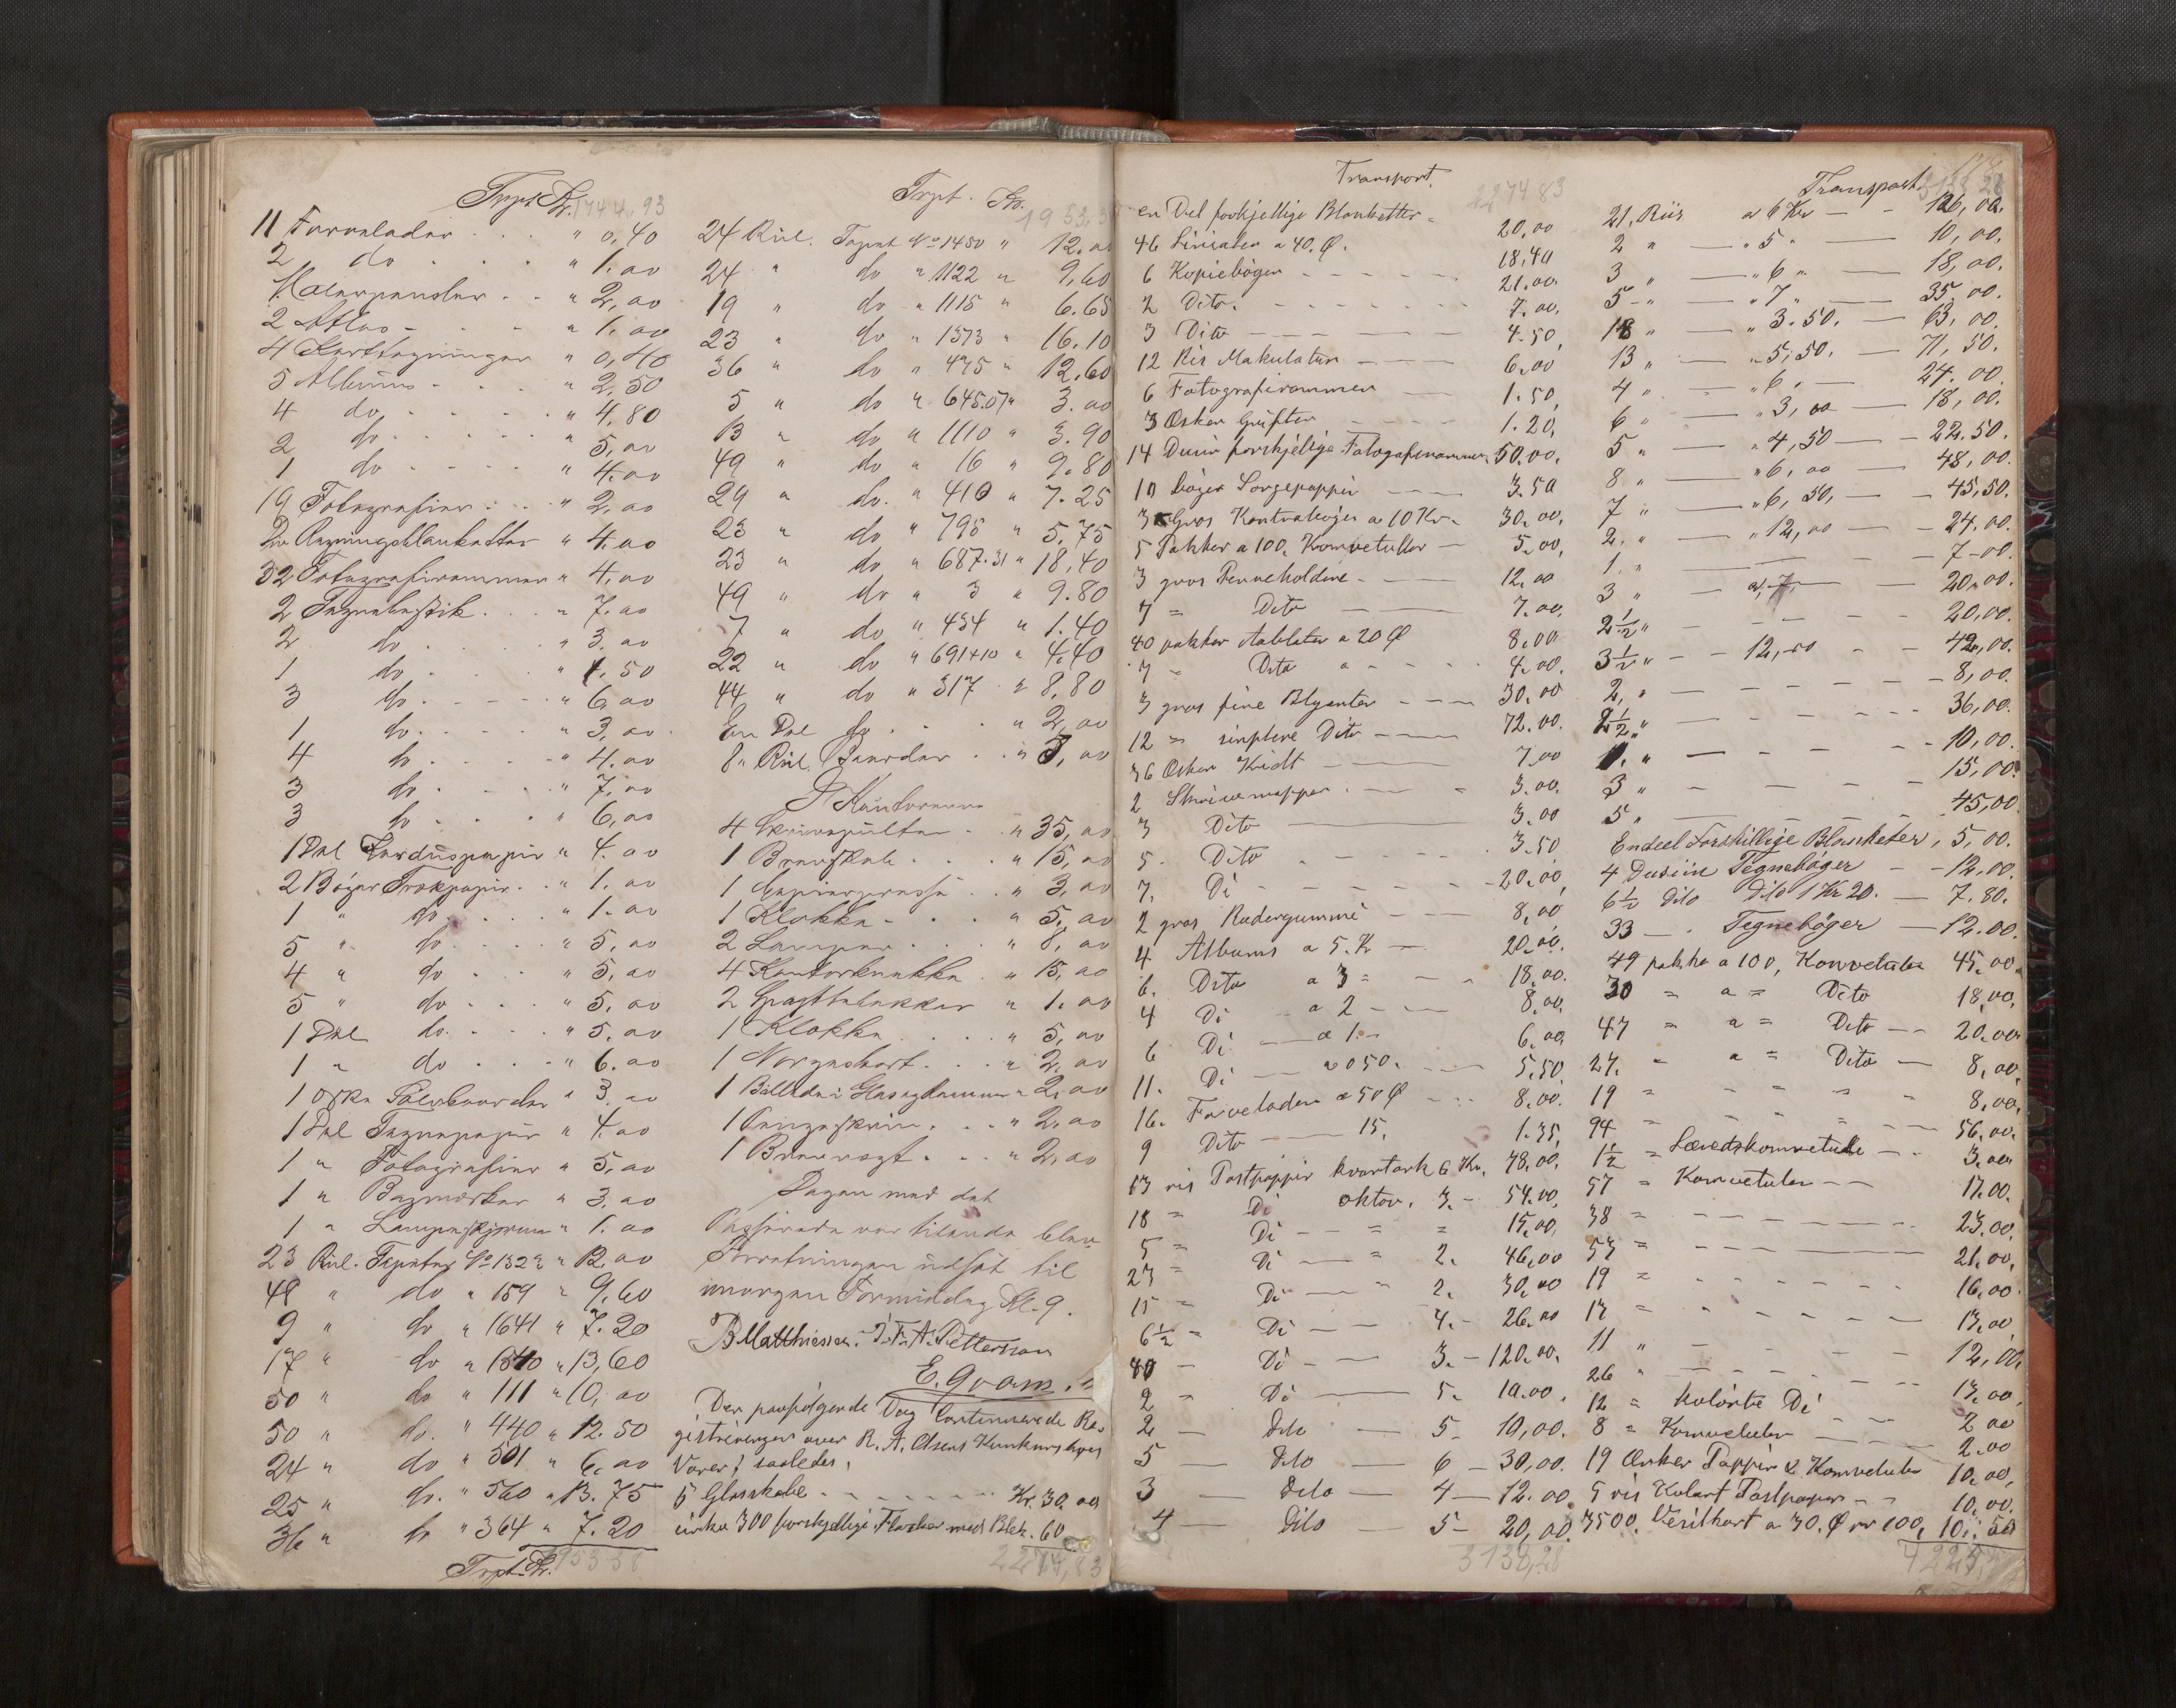 Trpt Kr. 1744,93
11 Farvelader . . . " 0,40
2 do . . . . " 1.00
Malerpensler . . " 2,00
2 Atlas - . . . " 1.00
4 Karttegninger " 0,40
5 Albums . . . " 2,50
4 do. . . . . " 4,80
2 do . . . . . " 5,00
1 do . . . . " 4.00
19 Fotografier . . . " 2,00
Regningsblanketter " 4.00
32 Fotografirammer " 4,00
2 Tegnebestik . . . " 7.00
2 do . . . . " 3.00
1 do . . . . " 1.50
3 do . . . . " 6,00
1 do . . . . " 3,00
4 do . . . . " 4.00
3 do . . . . " 7,00
3 do . . . . " 6,00
1 Del Karduspapir " 4.00
2 Bøger Trækpapir . . " 1.00
1 " do . . . . " 1.00
5 " do . . . . " 5,00
4 " do . . . " 5,00
5 " do . . . " 5,00
1 Del do . . . . " 5,00
1 " do . . . " 6.00
1 Æske " 3.00
1 Del Tegnepapir " 4.00
1 " Fotografier " 5,00
1 " Bogmærker " 3,00
1 " Lampeskjerme " 1.00
23 Rul. Tapeter No 1323 " 12,00
48 " do " 159 " 9,60
9 " do " 1641 " 7.20
17 " do " 1540 " 13,60
50 " do " 111 " 10,00
50 " do. " 440 " 12.50
24 " do " 501 " 6,00
25 " do. " 560 " 13.75
36 " do " 364 " 7.20
Trpt. Kr. 1953 38
Trpt. Kr. 1953,38
24 Rul. Tapet No 1450 " 12.00
24 " do " 1122 " 9,60
19 " do " 1115 " 6.65
23 " do " 1573 " 16.10
36 " do " 475 " 12.60
5 " do " 645.07 " 3.00
13 " do " 1110 " 3.90
49 " do " 16 " 9.80
29 " do. " 410 " 7.25
23 " do " 795 " 5,75
23 " do " 687.31 " 18,40
49 " do " 3 " 9.80
7 " do " 454 " 1.40
22 " do " 691+10 " 4,40
44 " do " 317 " 8,80
En Del do . . . " 2,00
8 Rul. Border . . " 3,00
I Kontorerne
4 Skrivepulter . . " 35,00
1 Brevskab . . . " 15,00
1 Kopierpresse . . " 3,00
1 Klokke . . . " 5,00
2 Lamper . . . " 8,00
4 Kontorkrakke . " 15,00
2 " 1.00
1 Klokke . . . . " 5,00
1 Norgeskart . . . " 2,00
1 Billede i Glas og Ramme " 2,00
1 Pengeskrin . . . " 2,00
1 Brevvægt . . . " 2,00
Dagen med det
Passerede var tilende blev
Forretningen udsat til
imorgen Formiddag Kl. 9.
B Matthiesen. J. F. A. Petterson
E. Gram.
Den paafølgende Dag Continuerede Re-
gistreringen over R. A. Olsens Konkursboes
Varer; saaledes,
5 Glasskabe - - - - - - Kr. 30,00
cirka 300 forskjellige Flasker med Blek. 60
2274,83
Transport. 2274 83
en Del forskjellige Blanketter - 20.00
46 Linialer a 40. Ø. 18.40
6 Kopiebøger - - - - - 21.00
2 Dito. - - - - - - 7.00.
3 Dito - - - - 4.50,
12 Ris Makulatur - - - 6,00
6 Fotografirammer - - - 1.50,
3 Æsker Grifler - - - - 1.20,
14 Dusin forskjelige Fotografirammer 50.00.
10 bøger Sørgepappir - - - 3.50
3 Gros Kontrabøger a 10 Kr. 30.00,
5 Pakker a 100. Konvelutter - 5.00,
3 gros Penneholdere. - - 12.00
7 = Dito - - 7.00,
40 pakker Aablater a 20 Ø 8.00
7 = Dito - - - - 4.00.
3 gros fine Blyanter - - - 30.00
12 = simplere Dito - - - 72.00.
36 Æsker Kridt - - - 7.00
2 Skrivemapper. - - - 3.00.
3 Dito - - - 3.00
5. Dito - - - - - 3.50
7. Di - - - - - 20.00,
2 gros Radergummi - - 8,00
4 Albums a 5. K - - 20.00.
6. Dito a 3 = - - 18.00.
4 Di - a 2 - - - 8.00.
6 Di - a 1 - 6.00
11. Di - - a 0 50. - - 5.50.
16. Farvelader a 50 Ø - - 8.00.
9 Dito - - 15. 1.35,
13 ris Postpappir kvartark 6 Kr. 78.00,
18 = Di oktav. 3. - 54.00,
5 = Di - - = = 15.00,
23 = Di - - = 2. 46,00
15 = Di - - " 2. 30,00
6½ = Di - - 4. - 26.00
40 - Di - - 3. - 120.00,
2 = Di - - 5. 10.00,
2 - Dito - 5. 10,00.
5 - Dito - 6 - 30,00.
3 - Dito - 4 - 12.00
4 - Dito - 5 - 20,00
3138,28
Transport 3138 28
21, Riis a 6 Kr - - 126,00.
2 " - " 5 " - 10,00.
3 " - " 6 " - 18,00.
5 - " - " 7 " - 35,00.
18 " - " 3.50. - 63,00.
13 " - " 5,50. - 71,50.
4 " - " 6. - 24.00.
6 " - " 3,00 - 18,00.
5 " - " 4,50 - - 22.50.
8 " - " 6,00 - 48,00.
7 " - " 6,50, - - 45,50.
2. " - " 12,00 - - 24.00.
1. " - - - 7-00.
3 " - a 7 - - 20,00.
2½ " - - - - - 20,00.
3½ " - - 12,00 - - 42,00.
2, " - - - - - - 8,00.
2½ " - - - - - 36,00.
1, " - - - - - 10,00.
3 " - - - - - 15,00.
5, - - - - - 45,00.
Endeel Forskillige Blanketer, 5,00.
4 Dusiin Tegnebøger - - 12,00.
6½ Dito Dito 1 Kr 20. - 7.80.
33 - . Tegnebøger - 12.00.
49 pakke a 100, Konvetuler 45.00.
30 = a = Dito 18,00,
47 = a = Dito - - 20.00
24. - a = Dito - 8,00,
19 = - = " - 8,00,
94 = - - - - 56,00.
1½ = Lærredskonvetuler - - 3.00
57 = Konvetuler - - 17.00.
38 = - - - - - 23.00,
53 = - - - - 21.00,
19 = - - - - - 16,00
17 = - - - - - 13,00,
11 " - - - - - 12,00.
26 " - - - - - 13,00,
12 = kolørte Di - - 2 00
8 = Konvetuler - - 2.00
19 Æsker Pappir & Konvetuler 10,00,
5 ris Kulørt Postpapir - - 10,00.
3500. Visitkort a 30. Ø pr 100, 10. 50